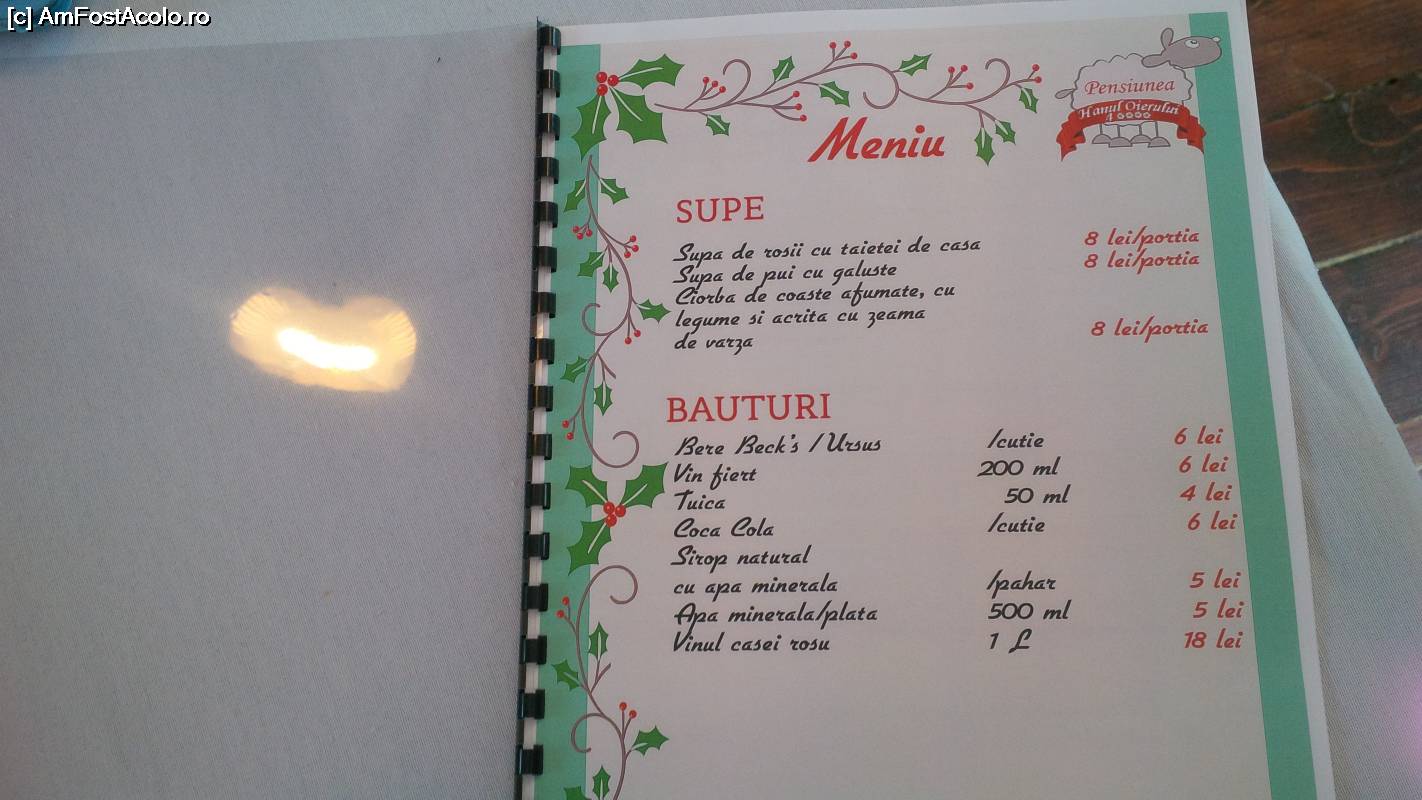 [c] AmFostAcolo.ro
Pensiunea
Hanul Oierului
Meniu
SUPE
Supa de rosii cu taietei de casa 8 lei/portia
Supa de pui cu galuste 8 lei/portia
Ciorba de coaste afumate, cu
legume si acrita cu zeama 8 lei/portia
de varza
BAUTURI
Bere Beck's /Ursus /cutie 6 lei
Vin fiert 200 ml 6 lei
Tuica 50 ml 4 lei
Coca Cola /cutie 6 lei
Sirop natural
cu apa minerala /pahar 5 lei
Apa minerala/plata 500 ml 5 lei
Vinul casei rosu 1 L 18 lei